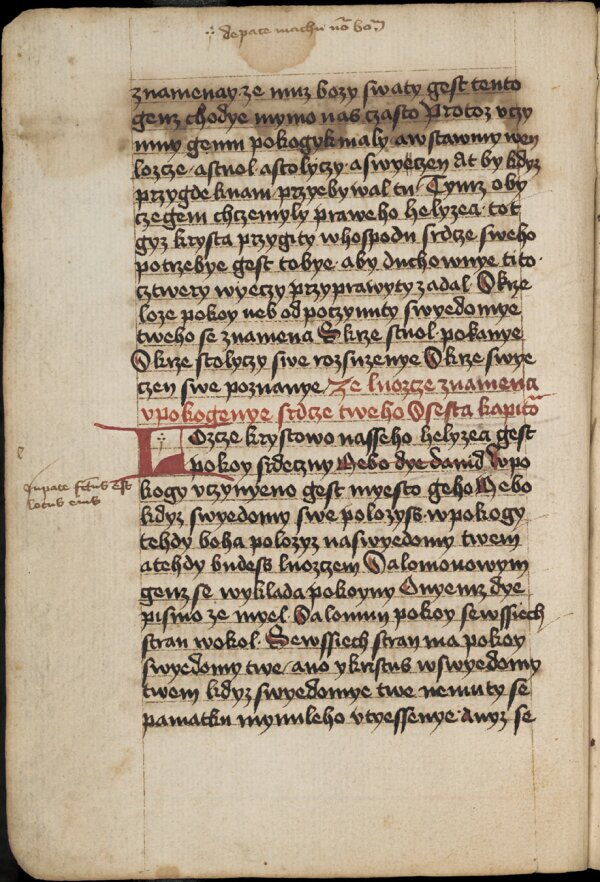 znamenay ze muz bozy swaty gest tento
genz chodye mymo nas czasto Protoz vczy
nmy gemu pokogyk maly a wstawmy wen
lozcze · a stuol · a stolyczy · a swyeczen At by kdyz
przygde knam przyebywal tu · Tymz oby
czegem chczemyly praweho helyzea · tot
gyz krysta przygity w hospodu srdcze sweho
potrzebye gest tobye · aby duchownye tito ·
cztwery wyeczy przyprawyty zadal · Skrze
loze pokoy neb odpoczynuty swyedomye
tweho se znamena Skrze stuol · pokanye
Skrze stolyczy swe rozsuzenye Skrze swye
czen swe poznanye · Ze luozcze znamena
vpokogenye srdcze tweho Ssesta kapito
Lozcze krystowo nasseho helyzea gest
pokoy srdeczny Nebo dye dawid Wpo
In pace factus est
locus eius
kogy vczynyeno gest myesto geho Nebo
kdyz swyedomy swe polozyss w pokogy
tehdy boha polozyz na swyedomy twem
a tehdy budess luozczem Salomonowym
genz se wyklada pokoyny Onyemz dye
pismo ze myel · Salomun pokoy se wssiech
stran wokol · Se wssiech stran ma pokoy
swyedomy twe / ano y kristus w swyedomy
twem kdyz swyedomye twe nemuty se
pamatku mynuleho vtyessenye · Anyz se